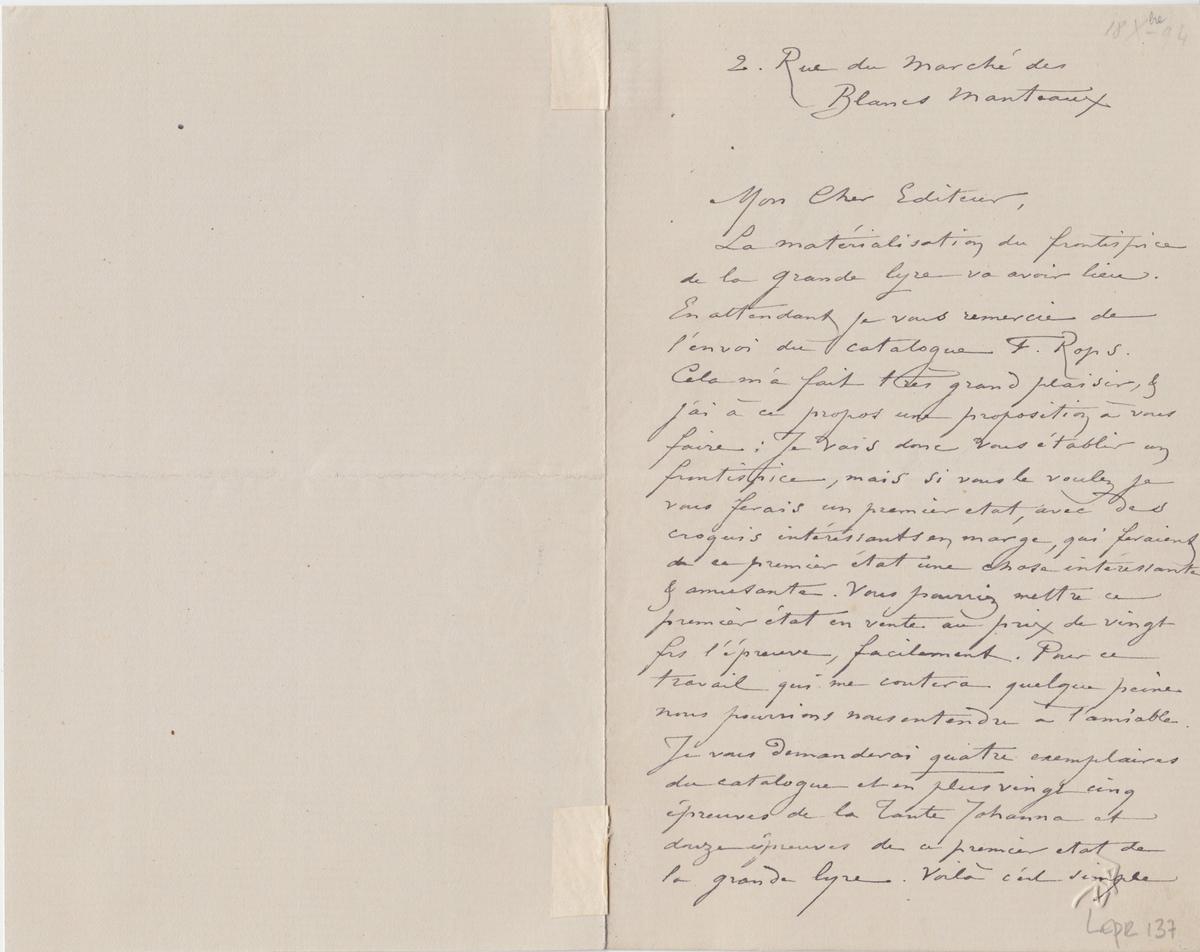 18 Xbre 94
2. Rue du Marché des
Blancs Manteaux
Mon Cher Editeur,
La matérialisation du frontispice
de la grande lyre va avoir lieu.
En attendant je vous remercie de
l'envoi du catalogue F. Rops.
Cela m'a fait très grand plaisir, &
j'ai à ce propos une proposition à vous
faire : Je vais donc vous établir un
frontispice, mais si vous le voulez je
vous ferais un premier etat, avec des
croquis intéressants en marge, qui feraient
de ce premier état une chose intéressante
& amusante. Vous pourriez mettre ce
premier état en vente au prix de vingt
frs l'épreuve, facilement. Pour ce
travail qui me coutera quelque peine
nous pourrions nous entendre à l'amiable.
Je vous demanderai quatre exemplaires
du catalogue et en plus vingt cinq
épreuves de la Tante Johanna et
douze épreuves de ce premier etat de
la grande lyre. Voilà c'est simple
LEPR 137